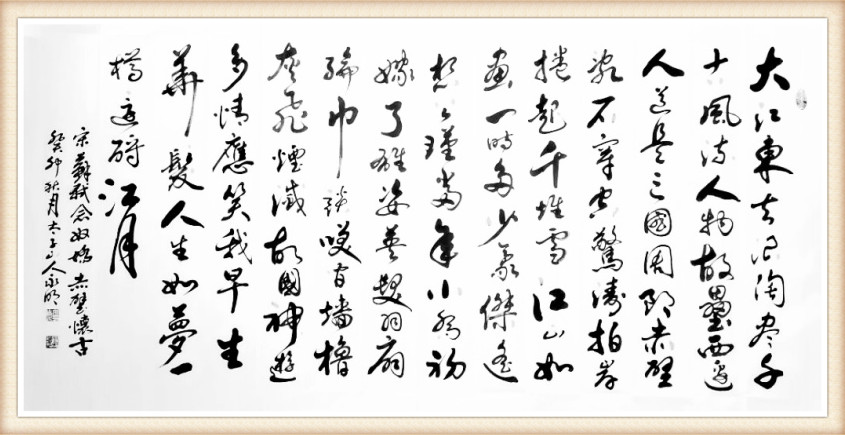 大江東去浪淘盡千
古風流人物故壘西邊
人道是三國周郎赤壁
亂石穿空驚濤拍岸
捲起千堆雪江山如
畫一時多少豪傑遙
想公瑾當年小喬初
嫁了雄姿英發羽扇
綸巾談笑間墻櫓
灰飛煙滅故國神遊
多情應笑我早生
華髮人生如夢一
樽還酹江月
宋蘇軾念奴嬌赤壁懷古
癸卯秋月太子山人永明